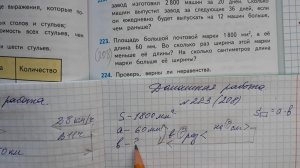 завод изготовил 2 800 машин за 20 дней. Сколько
машин выпустит завод за следующие 36 дней, если
он ежедневно будет выпускать на 12 машин больше,
чем раньше?
стольев;
имость всех стульев, чем
шести стульев.
Количество
223. Площадь большой почтовой марки 1 800 мм², а её
(208)
длина 60 мм. Во сколько раз ширина этой марки
меньше её длины? На сколько сантиметров длина
марки больше её ширины?
224. Проверь, верны ли неравенства.
работа
Домашняя работа
№ 223 (208)
S - 1800 мм²
a - 60 мм
b - ?
в ? раз <
на ? см >
S = a · b